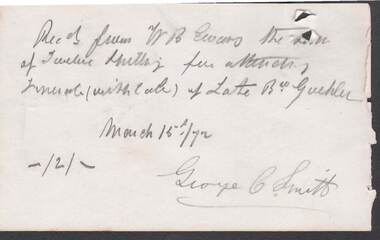 Rec'd from W B Evans the sum
of Twelve Shillings for attending
Funeral (with Cab) of Late Bro
March 15th/72
-/2/-
George C. Smith